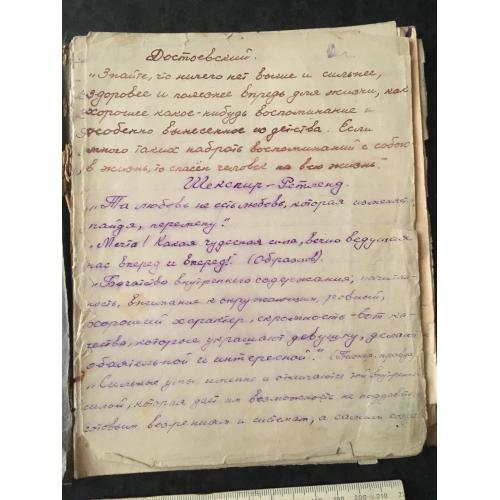 Достоевский.
"Знайте, что ничего нет выше и сильнее,
здоровее и полезнее впредь для жизни, как
хорошее какое-нибудь воспоминание и
особенно вынесенное из детства. Если
много таких набрать воспоминаний с собою
в жизнь, то спасён человек на всю жизнь."
Шекспир - Ретленд.
"Та любовь не есть любовь, которая изменяет,
найдя, перемену".
"Мечта! Какая чудесная сила, вечно ведущая
нас вперед и вперед!" (Образцов).
"Богатство внутреннего содержания, начитан-
ность, внимание к окружающим, ровный,
хороший характер, скромность - вот ка-
чества, которые украшают девушку, делают
обаятельной и интересной." (Пионер. правда)
"Сильные умы именно и отличаются той внутрен.
силой, которая даёт им возможность не поддават.
готовым воззрениям и системам, а самим созд
190 200 210